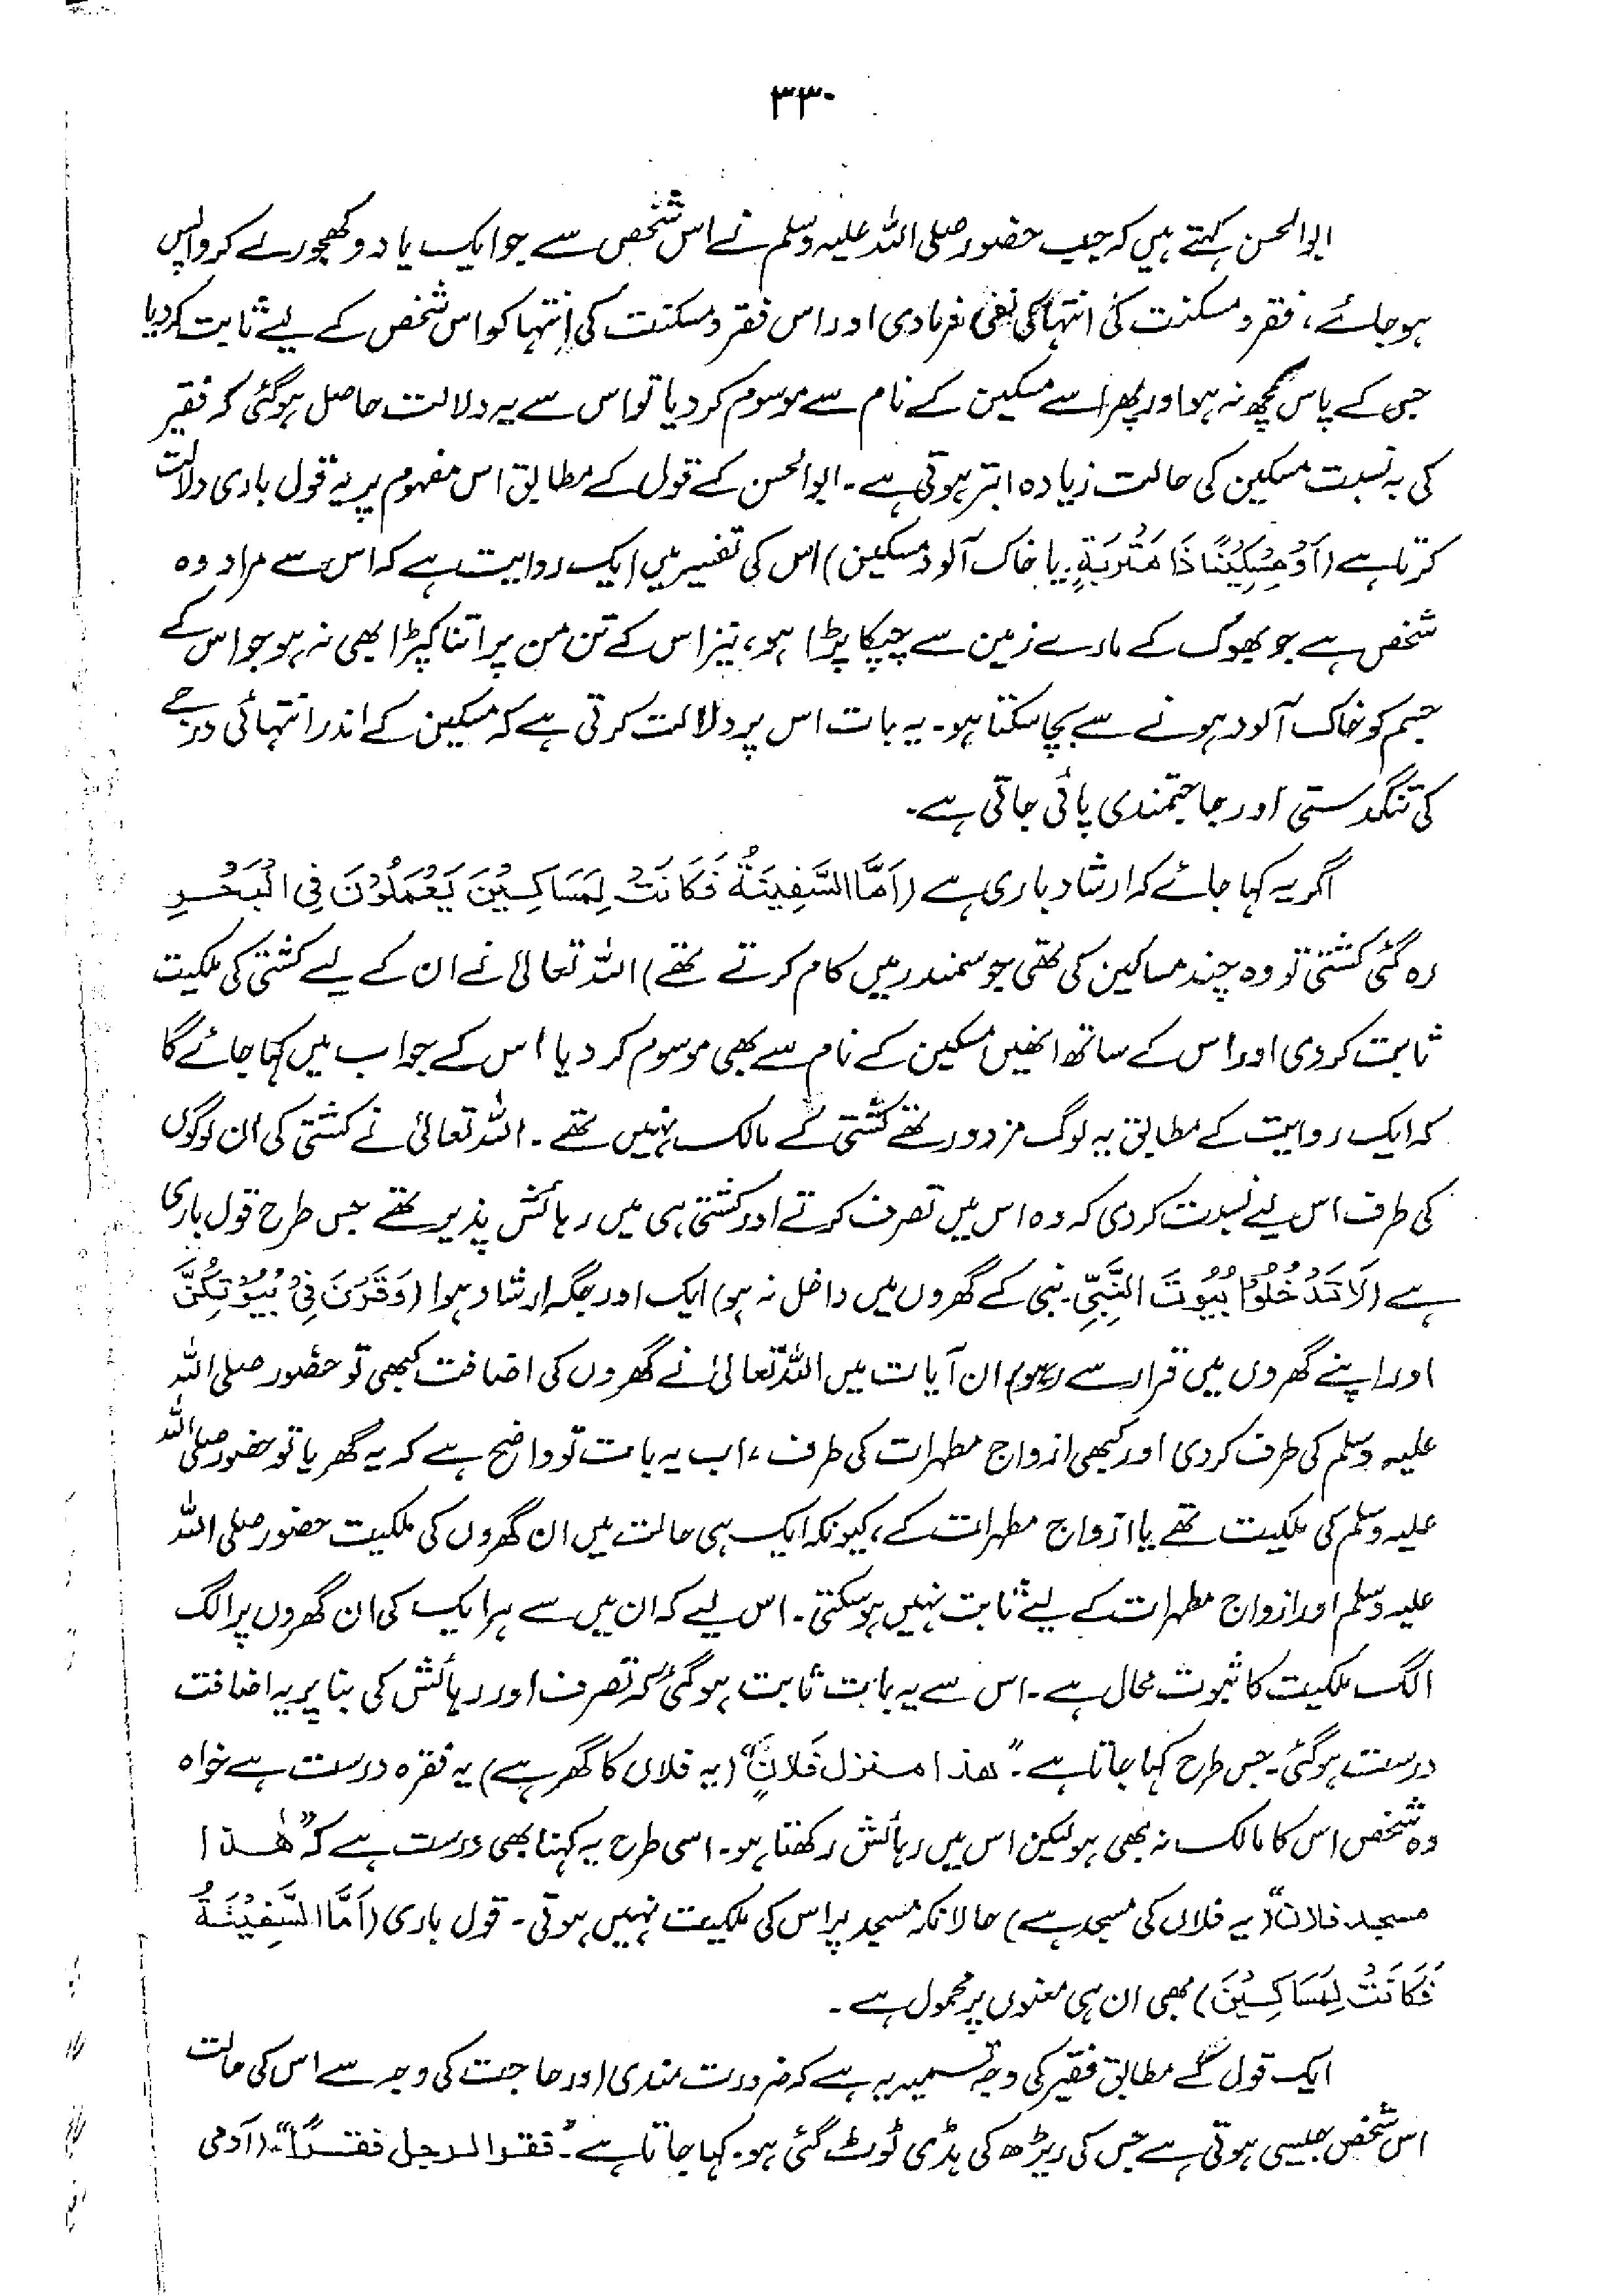 ۳۳۰
ابوالحسن کہتے ہیں کہ جب حضور صلی اللہ علیہ وسلم نے اس شخص سے جو ایک یا دو کھجور لے کر واپس
ہو جائے، فقر و مسکنت کی انتہا کی نفی فرما دی اور اس فقر و مسکنت کی انتہا کو اس شخص کے لیے ثابت کر دیا
جس کے پاس کچھ نہ ہو اور پھر اسے مسکین کے نام سے موسوم کر دیا تو اس سے یہ دلالت حاصل ہو گئی کہ فقیر
کی بہ نسبت مسکین کی حالت زیادہ ابتر ہوتی ہے۔ ابوالحسن کے قول کے مطابق اس مفہوم پر یہ قول باری دلالت
کرتا ہے (اَوْ مِسْكِيْنًا ذَا مَتْرَبَةٍ۔ یا خاک آلود مسکین) اس کی تفسیر میں ایک روایت ہے کہ اس سے مراد وہ
شخص ہے جو بھوک کے مارے زمین سے چپکا پڑا ہو، نیز اس کے تن من پر اتنا کپڑا بھی نہ ہو جو اس کے
جسم کو خاک آلود ہونے سے بچا سکتا ہو۔ یہ بات اس پر دلالت کرتی ہے کہ مسکین کے اندر انتہائی درجے
کی تنگدستی اور حاجتمندی پائی جاتی ہے۔
اگر یہ کہا جائے کہ ارشاد باری ہے (اَمَّا السَّفِيْنَةُ فَكَانَتْ لِمَسَاكِيْنَ يَعْمَلُوْنَ فِي الْبَحْرِ
رہ گئی کشتی تو وہ چند مساکین کی تھی جو سمندر میں کام کرتے تھے) اللہ تعالیٰ نے ان کے لیے کشتی کی ملکیت
ثابت کر دی اور اس کے ساتھ انھیں مسکین کے نام سے بھی موسوم کر دیا اس کے جواب میں کہا جائے گا
کہ ایک روایت کے مطابق یہ لوگ مزدور تھے کشتی کے مالک نہیں تھے۔ اللہ تعالیٰ نے کشتی کی ان لوگوں
کی طرف اس لیے نسبت کر دی کہ وہ اس میں تصرف کرتے اور کشتی ہی میں رہائش پذیر تھے جس طرح قول باری
ہے (لَا تَدْخُلُوْا بُيُوْتَ النَّبِيِّ۔ نبی کے گھروں میں داخل نہ ہو) ایک اور جگہ ارشاد ہوا (وَقَرْنَ فِيْ بُيُوْتِكُنَّ
اور اپنے گھروں میں قرار سے رہو) ان آیات میں اللہ تعالیٰ نے گھروں کی اضافت کبھی تو حضور صلی اللہ
علیہ وسلم کی طرف کر دی اور کبھی ازواج مطہرات کی طرف، اب یہ بات تو واضح ہے کہ یہ گھر یا تو حضور صلی اللہ
علیہ وسلم کی ملکیت تھے یا ازواج مطہرات کے، کیونکہ ایک ہی حالت میں ان گھروں کی ملکیت حضور صلی اللہ
علیہ وسلم اور ازواج مطہرات کے لیے ثابت نہیں ہو سکتی۔ اس لیے کہ ان میں سے ہر ایک کی ان گھروں پر الگ
الگ ملکیت کا ثبوت محال ہے۔ اس سے یہ بات ثابت ہو گئی کہ تصرف اور رہائش کی بنا پر یہ اضافت
درست ہو گئی۔ جس طرح کہا جاتا ہے۔ "ھذا منزل فلانٍ" (یہ فلاں کا گھر ہے) یہ فقرہ درست ہے خواہ
وہ شخص اس کا مالک نہ بھی ہو لیکن اس میں رہائش رکھتا ہو۔ اسی طرح یہ کہنا بھی درست ہے کہ "ھٰذا
مسجد فلان" (یہ فلاں کی مسجد ہے) حالانکہ مسجد پر اس کی ملکیت نہیں ہوتی۔ قول باری (اَمَّا السَّفِيْنَةُ
فَكَانَتْ لِمَسَاكِيْنَ) بھی ان ہی معنوں پر محمول ہے۔
ایک قول کے مطابق فقیر کی وجہ تسمیہ یہ ہے کہ ضرورت مندی اور حاجت کی وجہ سے اس کی حالت
اس شخص جیسی ہوتی ہے جس کی ریڑھ کی ہڈی ٹوٹ گئی ہو۔ کہا جاتا ہے۔ "فقر الرجل فقرًا" (آدمی